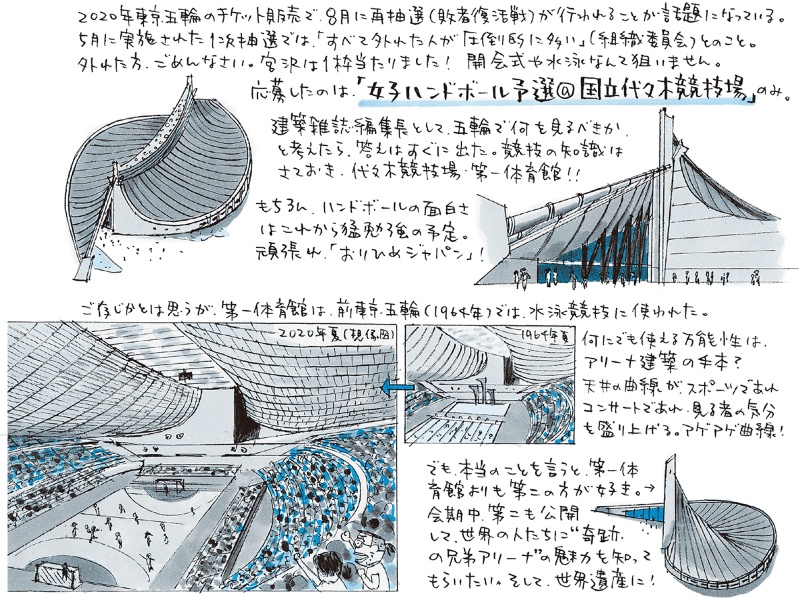 2020年東京五輪のチケット販売で、8月に再抽選(敗者復活戦)が行われることが話題になっている。
5月に実施された1次抽選では、「すべて外れた人が圧倒的に多い」(組織委員会)とのこと。
外れた方、ごめんなさい。宮沢は1枠当たりました! 開会式や水泳なんて狙いません。
応募したのは、「女子ハンドボール予選@国立代々木競技場」のみ。
建築雑誌編集長として、五輪で何を見るべきか、
と考えたら、答えはすぐに出た。競技の知識は
さておき、代々木競技場・第一体育館!!
もちろん、ハンドボールの面白さ
はこれから猛勉強の予定。
頑張れ、「おりひめジャパン」!
ご存じかとは思うが、第一体育館は、前東京五輪(1964年)では、水泳競技に使われた。
2020年夏(想像図)
1964年夏
何にでも使える万能性は、
アリーナ建築の手本?
天井の曲線が、スポーツであれ
コンサートであれ、見る者の気分
を盛り上げる。アゲアゲ曲線!
でも、本当のことを言うと、第一体
育館よりも第二の方が好き。→
会期中、第二も公開
して、世界の人たちに"奇跡
の兄弟アリーナ"の魅力を知って
もらいたい。そして、世界遺産に!